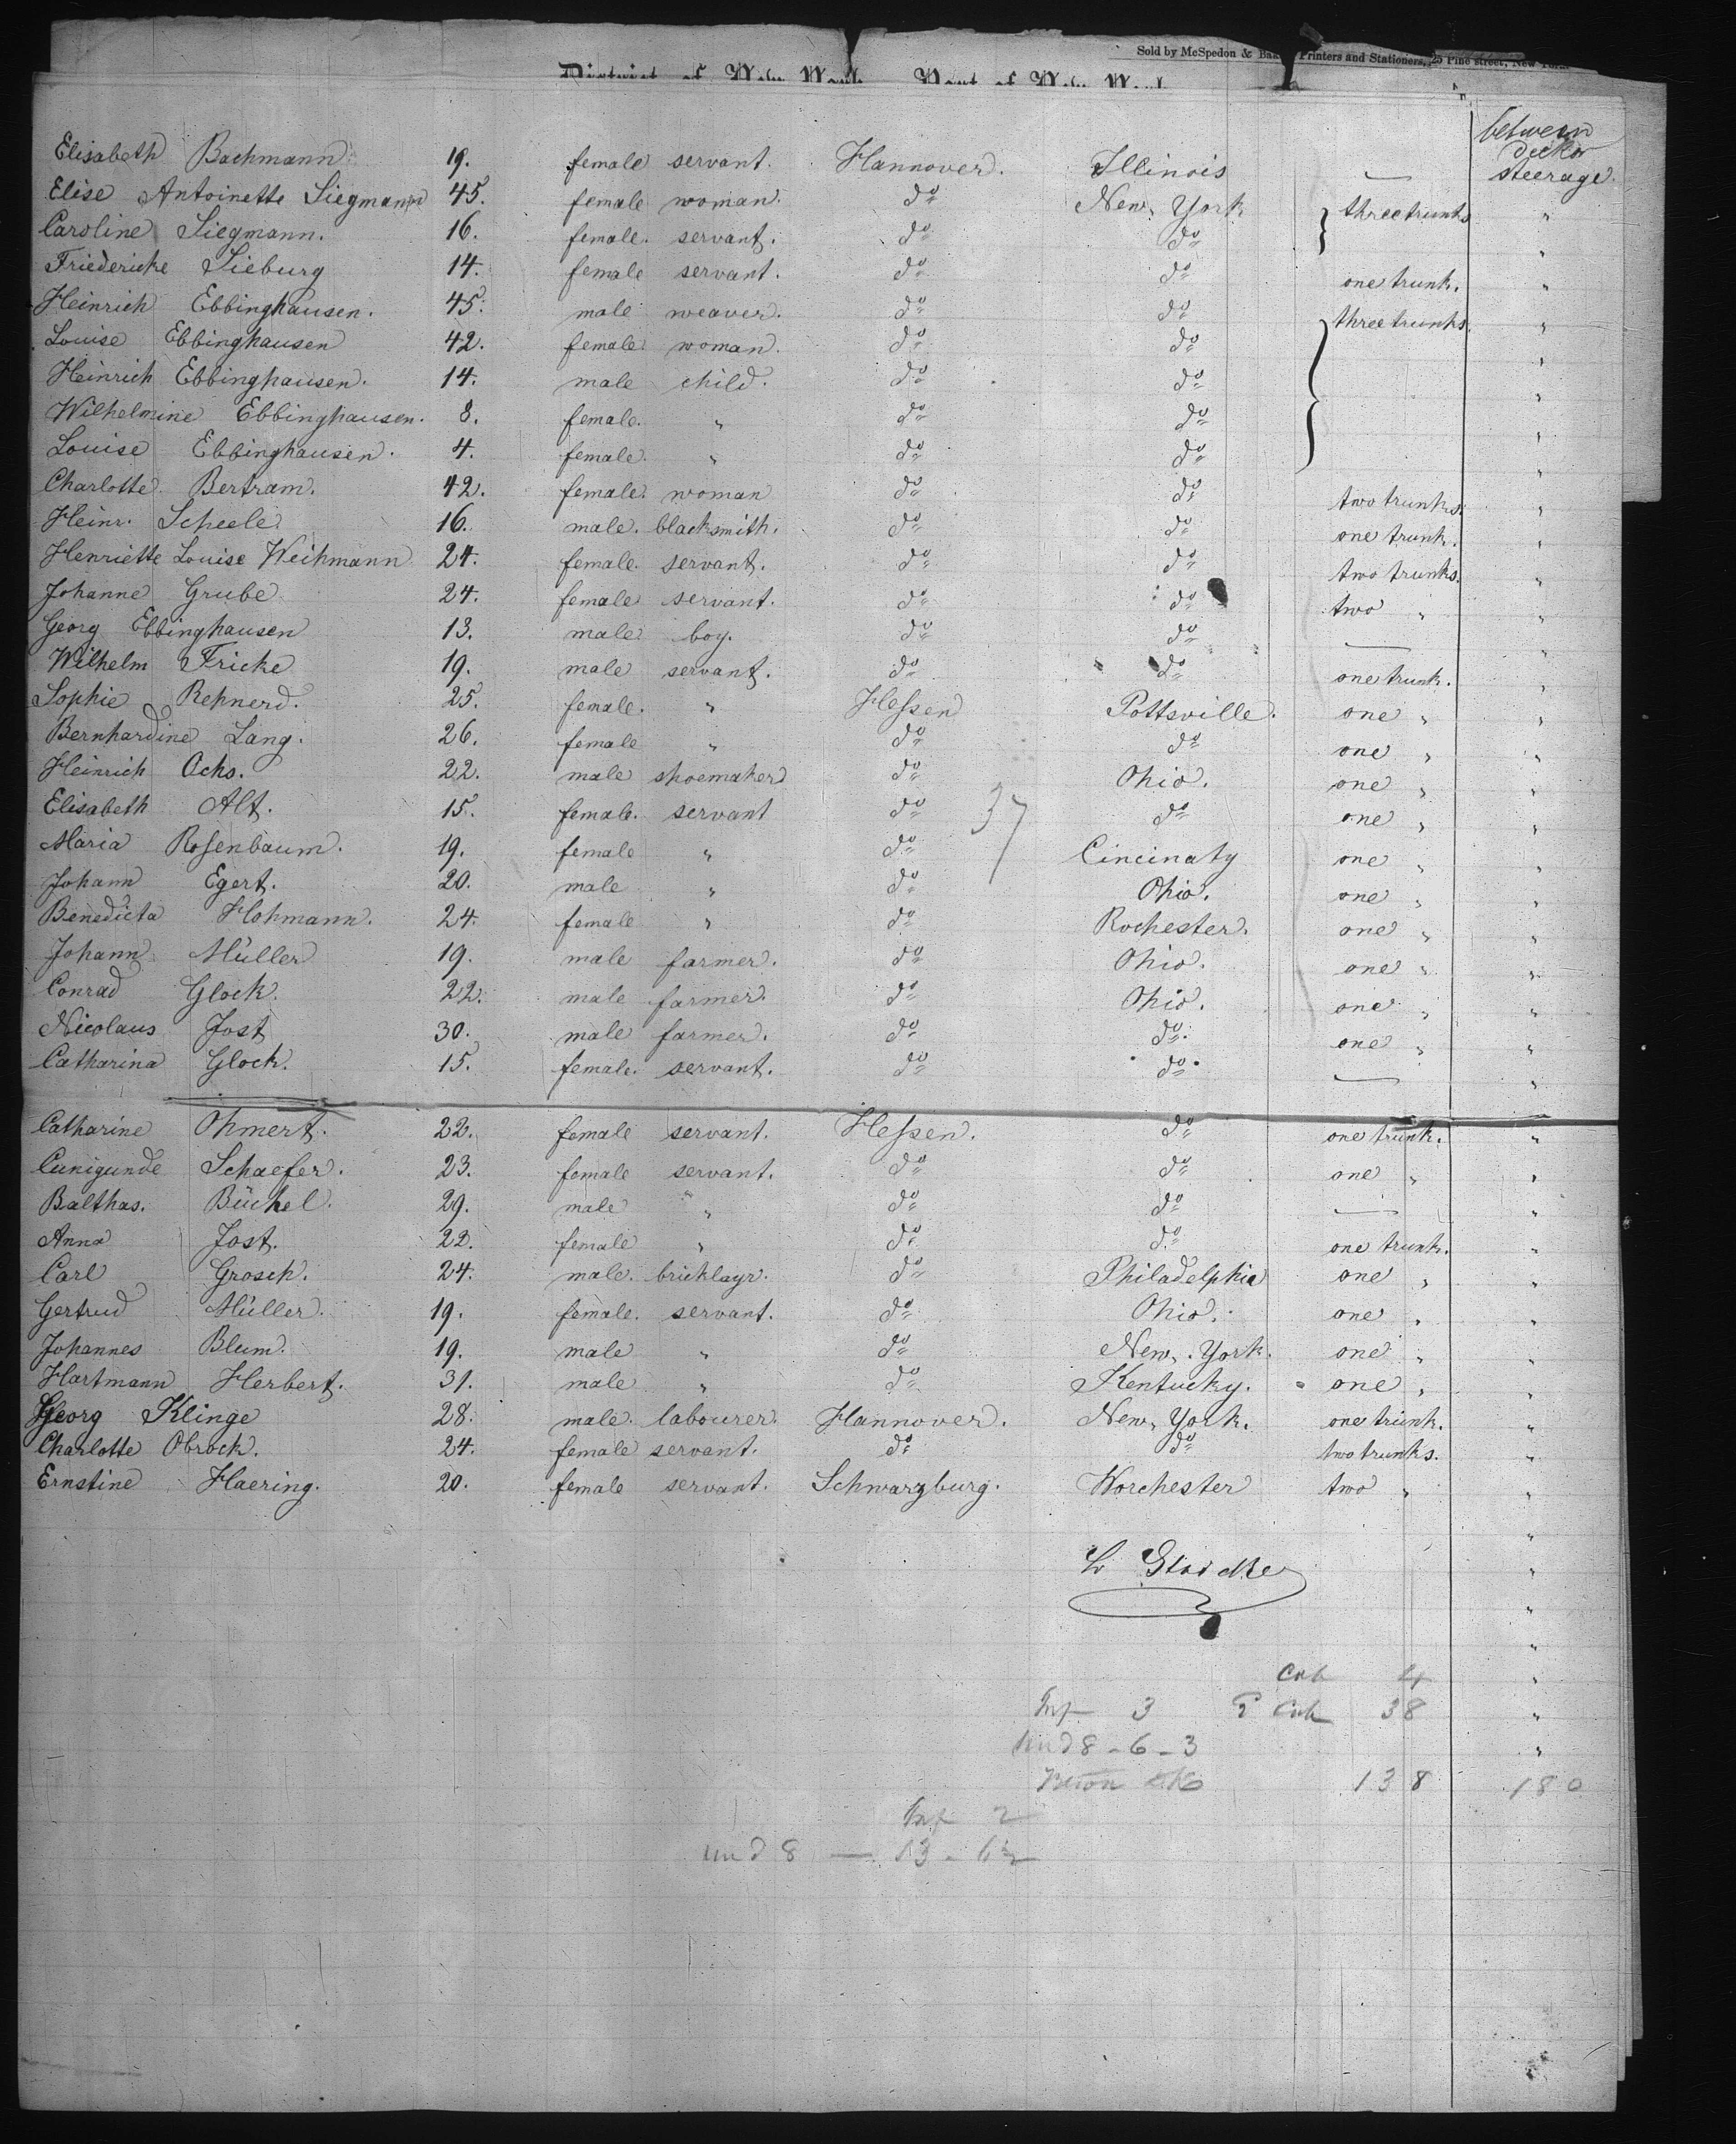 Sold by McSpedon & Printers and Stationers, 25 Pine street, New York.
District of New York Port of New York
between
decks
Elisabeth Bachmann 19. female servant. Hannover. Illinois — steerage.
Elise Antoinette Siegmann 45. female woman. do New York } three trunks "
Caroline Siegmann. 16. female. servant. do do "
Friedericke Sieburg 14. female servant. do do one trunk. "
Heinrich Ebbinghausen. 45. male weaver. do do } three trunks. "
Louise Ebbinghausen 42. female woman. do do "
Heinrich Ebbinghausen. 14. male child. do do "
Wilhelmine Ebbinghausen. 8. female. " do do "
Louise Ebbinghausen. 4. female. " do do "
Charlotte Bertram. 42. female. woman do do two trunks. "
Heinr. Scheele 16. male. blacksmith. do do one trunk. "
Henriette Louise Weihmann 24. female. servant. do do two trunks. "
Johanne Grube 24. female servant. do do two " "
Georg Ebbinghausen 13. male boy. do do — "
Wilhelm Fricke 19. male servant. do do one trunk. "
Sophie Rehnerd. 25. female. " Heſsen Pottsville. one " "
Bernhardine Lang. 26. female " do do one " "
Heinrich Ochs. 22. male shoemaker do Ohio. one " "
Elisabeth Alt. 15. female. servant do 37 do one " "
Maria Roſenbaum. 19. female " do Cincinaty one " "
Johann Egert. 20. male " do Ohio. one " "
Benedicta Hohmann. 24. female " do Rochester. one " "
Johann Müller 19. male farmer. do Ohio. one " "
Conrad Glock. 22. male farmer. do Ohio. one " "
Nicolaus Jost 30. male farmer. do do. one " "
Catharina Glock. 15. female. servant. do do. — "
Catharine Ohmert. 22. female servant. Heſsen. do one trunk. "
Cunigunde Schaefer. 23. female servant. do do one " "
Balthas. Büchel. 29. male " do do — "
Anna Jost. 22. female " do do one trunk. "
Carl Grosch. 24. male. bricklayr. do Philadelphia one " "
Gertrud Müller. 19. female. servant. do Ohio. one " "
Johannes Blum. 19. male " do New York. one " "
Hartmann Herbert. 31. male " do Kentucky. one " "
Georg Klinge 28. male. labourer. Hannover. New York. one trunk. "
Charlotte Obrock. 24. female servant. do do two trunks. "
Ernstine Haering. 20. female servant. Schwarzburg. Worchester two " "
Cab 4
Inf 3 2 Cab 38
Und 8 - 6 - 3
138 180
Inf 2
und 8 — 13 - 6½